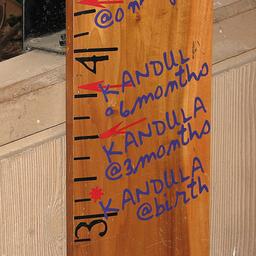 4
KANDUL
@6months
KANDULA
@3months
KANDULA
@birth
3